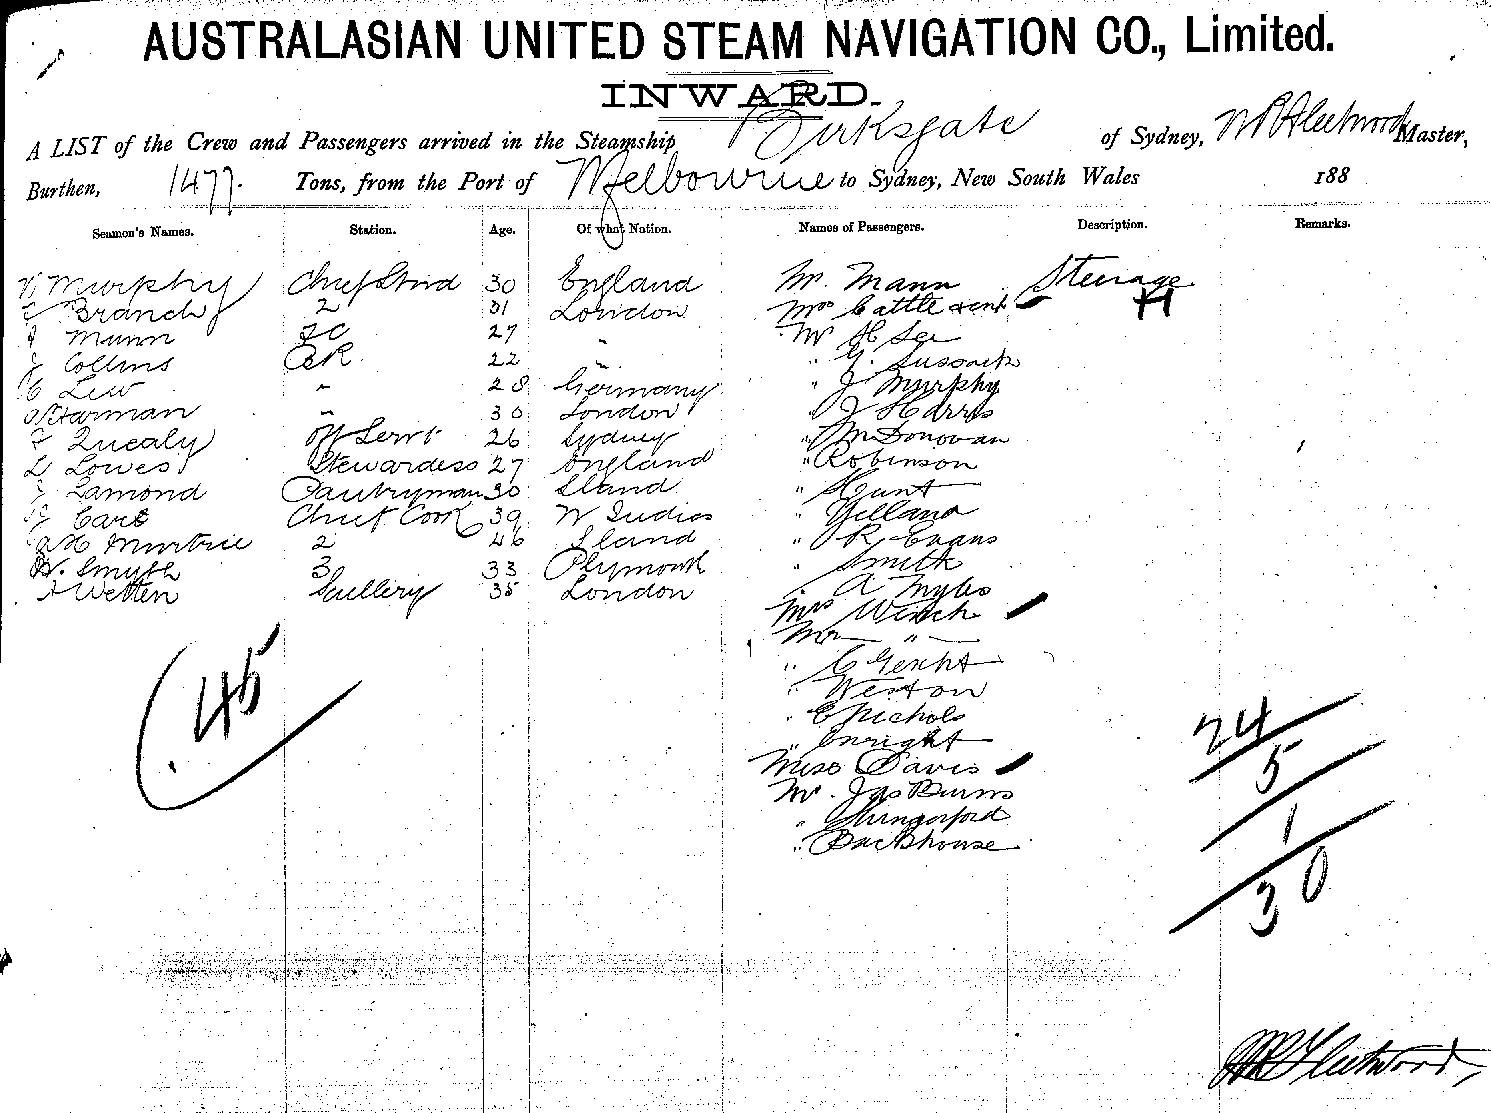 AUSTRALASIAN UNITED STEAM NAVIGATION CO., Limited.
INWARD.
A LIST of the Crew and Passengers arrived in the Steamship Birksgate of Sydney, Fleetwood Master,
Burthen, 1477. Tons, from the Port of Melbourne to Sydney, New South Wales 188
Seamen's Names. Station. Age. Of what Nation. Names of Passengers. Description. Remarks.
Murphy Chief Stwd 30 England Mr. Mann Steerage
Branch 2 31 London Mrs Cattle
Munn 27 " Mr H See
J Collins 22 " "
C Lew " 28 Germany " J Murphy
Harman " 30 London " J Harris
F Quealy Off Servt 26 Sydney " McDonovan
L Lowes Stewardess 27 England " Robinson
J Lamond Pantryman 30 " Hunt
Chief Cook 39 W Indies "
2 46 " R Evans
W. Smyth 3 33 Plymouth " Smith
Wetten Scullery 35 London " A Myles
Mrs Winch
Mr "
" C
" Weston
" E Nichols
" Enright
Miss Davis
Mr. Jas Burns
" Hungerford
" Backhouse
45
24
5
1
30
Fleetwood